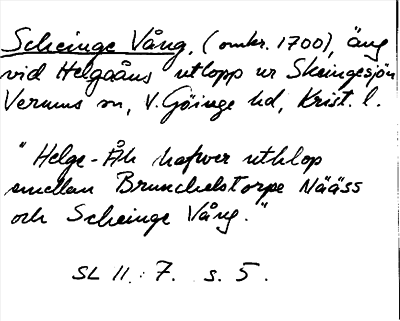 Scheinge Vång, (omkr. 1700), äng
vid Helgeåns utlopp ur Skeingesjön
Verums sn, V. Göinge hd, Krist. l.
"Helge-Åh hafwer uthlop
emellan Brunchelstorps Nääss
och Scheinge Vång."
SL 11:7. s. 5.